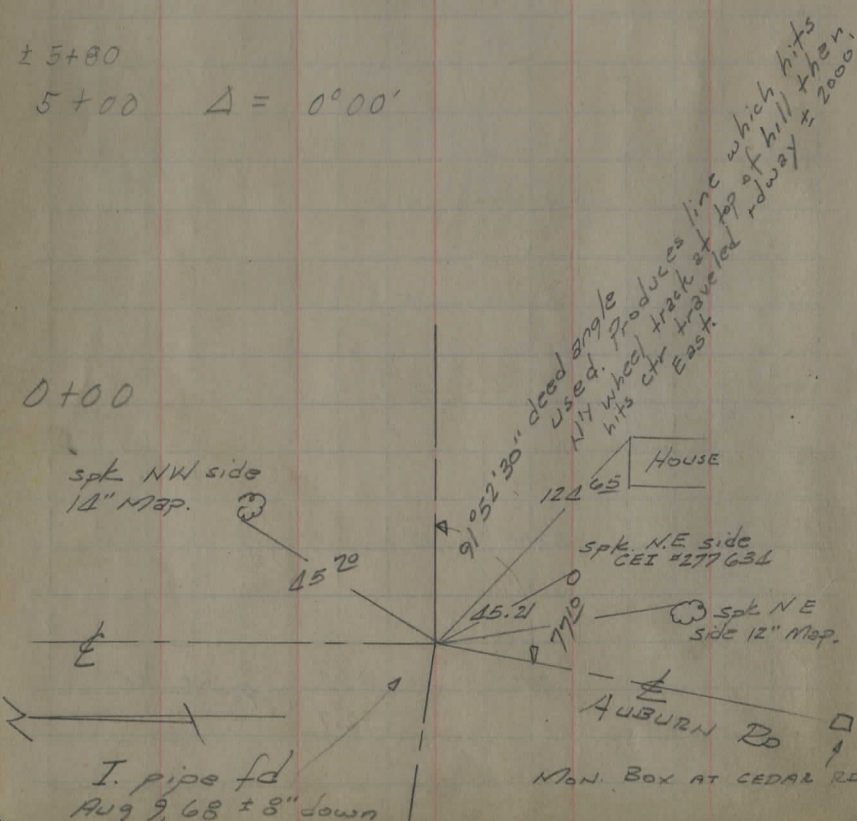 ± 5+80
5+00 Δ = 0°00'
0+00
91°52'30" deed angle
used. Produces line which hits
N'ly wheel track at top of hill then
hits ctr traveled rdway ± 2000'
East.
spk NW side
14" Map.
45 70
124 65
HOUSE
spk. N.E side
CEI #277634
45.21
77 10
spk NE
side 12" Map.
℄
℄
AUBURN RD
MON. BOX AT CEDAR RD
I. pipe fd
Aug 9, 68 ± 8" down